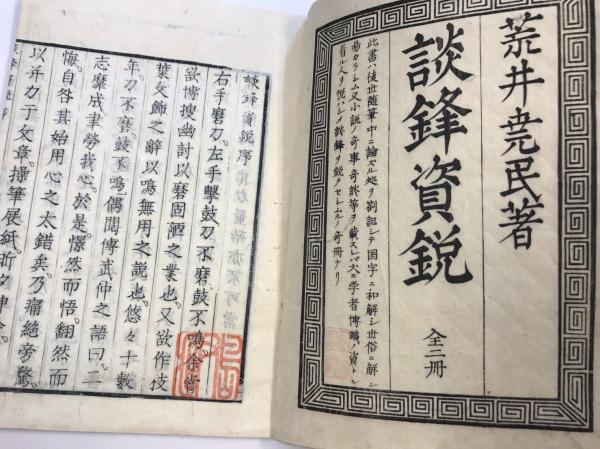 荒井堯民著
談鋒資鋭
全二冊
此書ハ後世随筆中ニ論ズル処ヲ劄記シテ国字ニ和解シ世俗ニ解シ
易カラシム又小説ノ奇事奇談等ヲ載スレバ大ニ学者博識ノ資トシ
看ル人ヲ悦ハシメ談鋒ヲ鋭クセシムルノ奇冊ナリ
談鋒資鋭序
右手磨刀。左手擊鼓。刀不磨。鼓不鳴。余嘗
欲博搜幽討以磨固陋之業也。又欲作伎
葉文飾之辭以鳴無用之說也。悠々十數
年。刀不磨。鼓不鳴。偶閲傳武仲之語曰。二
志靡成。聿勞我心。於是。憬然而悟。翻然而
悔。自咎其始用心之太錯矣。乃痛絶旁騖。
以并力于文章。操筆展紙。